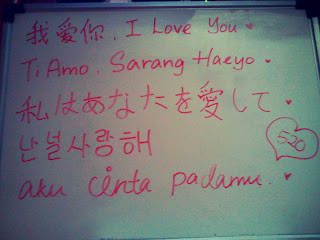 我爱你, I Love You ♥
Ti Amo, Sarang Haeyo ♥
私はあなたを愛して ♥
난널사랑해
520
aku cinta padamu. ♥